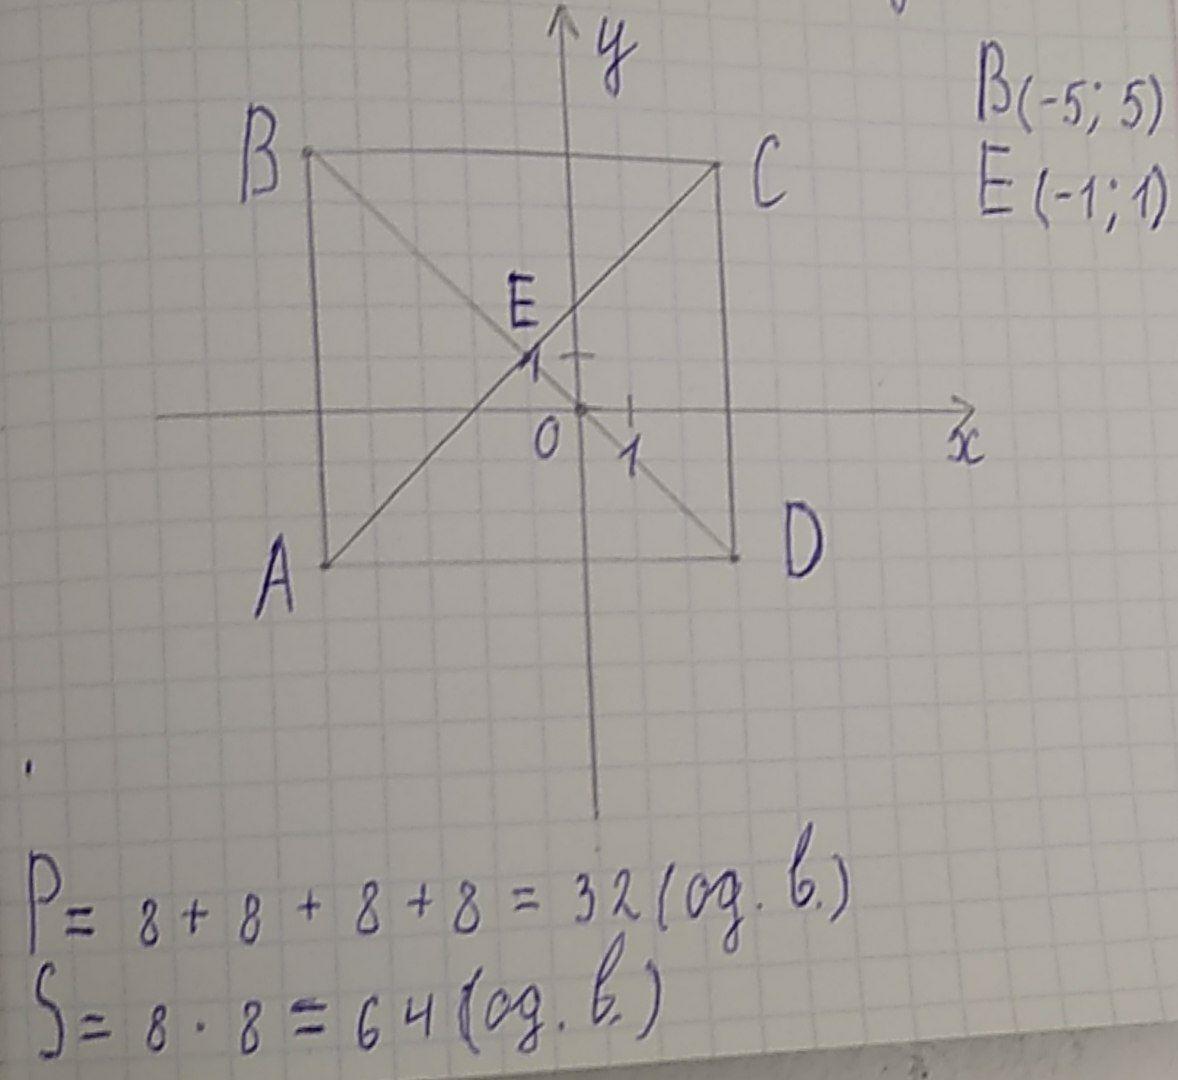 y
B(-5; 5)
B
C
E(-1; 1)
E
1
0
1
x
A
D
P = 8 + 8 + 8 + 8 = 32 (од. в.)
S = 8 · 8 = 64 (од. в.)